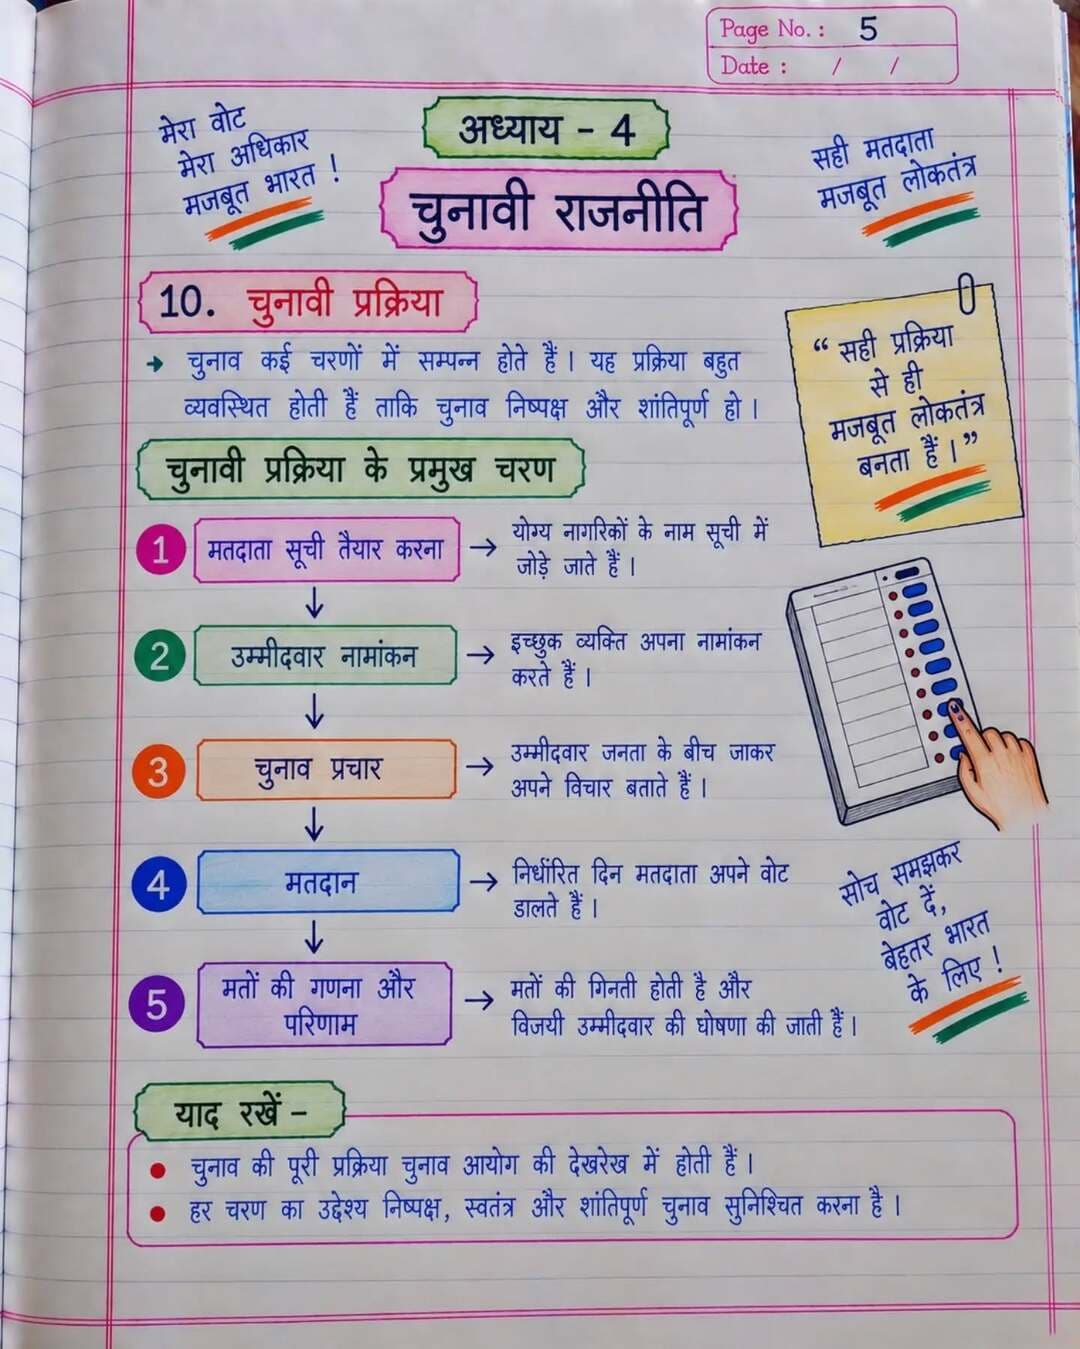 Page No. : 5
Date : / /
मेरा वोट
मेरा अधिकार
मजबूत भारत !
अध्याय - 4
सही मतदाता
मजबूत लोकतंत्र
चुनावी राजनीति
10. चुनावी प्रक्रिया
→ चुनाव कई चरणों में सम्पन्न होते हैं । यह प्रक्रिया बहुत
व्यवस्थित होती हैं ताकि चुनाव निष्पक्ष और शांतिपूर्ण हो ।
“ सही प्रक्रिया
से ही
मजबूत लोकतंत्र
बनता हैं । ”
चुनावी प्रक्रिया के प्रमुख चरण
1 मतदाता सूची तैयार करना → योग्य नागरिकों के नाम सूची में
जोड़े जाते हैं ।
2 उम्मीदवार नामांकन → इच्छुक व्यक्ति अपना नामांकन
करते हैं ।
3 चुनाव प्रचार → उम्मीदवार जनता के बीच जाकर
अपने विचार बताते हैं ।
4 मतदान → निर्धारित दिन मतदाता अपने वोट
डालते हैं ।
सोच समझकर
वोट दें,
बेहतर भारत
के लिए !
5 मतों की गणना और
परिणाम → मतों की गिनती होती है और
विजयी उम्मीदवार की घोषणा की जाती हैं ।
याद रखें -
चुनाव की पूरी प्रक्रिया चुनाव आयोग की देखरेख में होती हैं ।
हर चरण का उद्देश्य निष्पक्ष, स्वतंत्र और शांतिपूर्ण चुनाव सुनिश्चित करना है ।